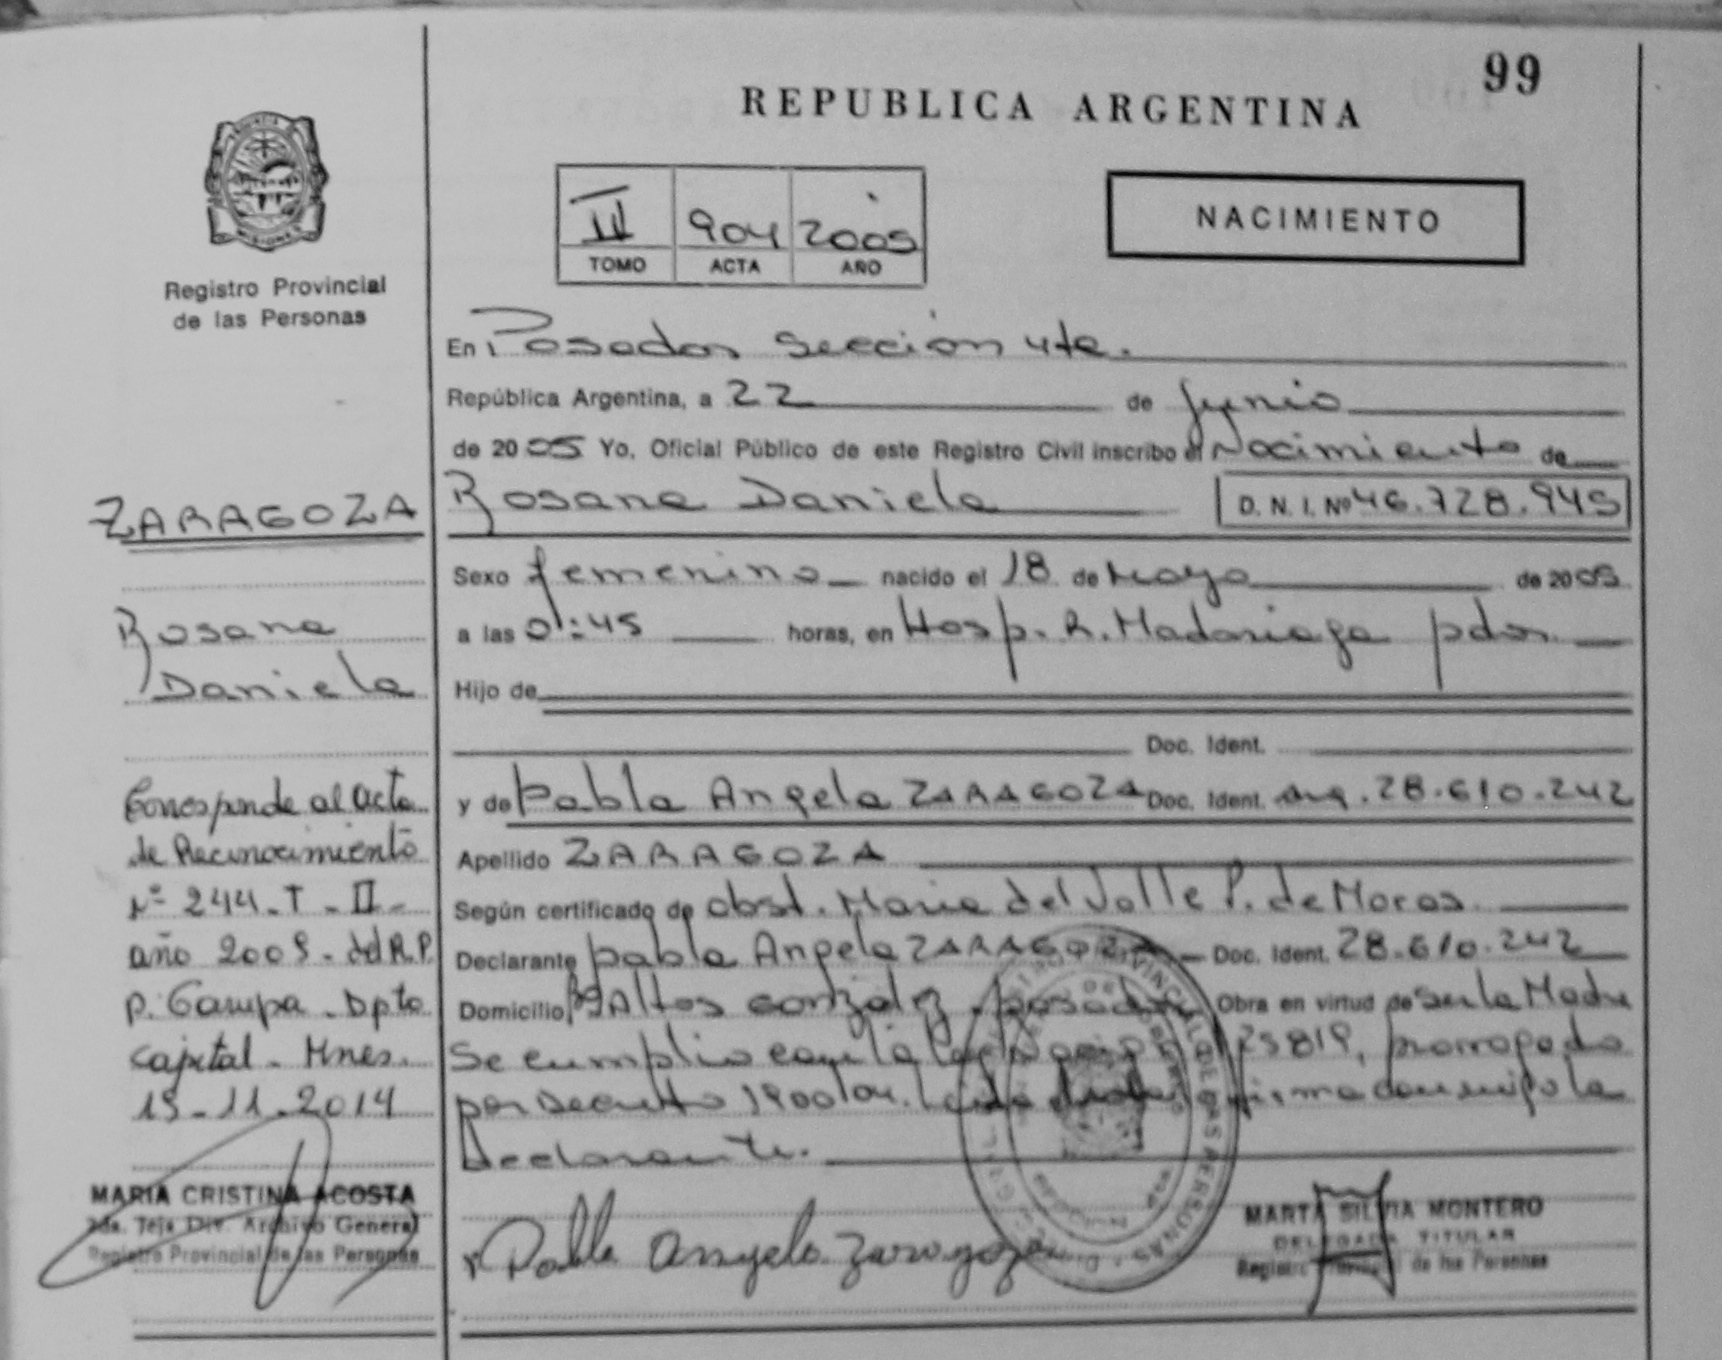 99
REPUBLICA ARGENTINA
MISIONES
Registro Provincial
de las Personas
II 904 2005
TOMO ACTA AÑO
NACIMIENTO
En Posadas Sección 4ta.
República Argentina, a 22 de Junio
de 2005 Yo, Oficial Público de este Registro Civil inscribo el Nacimiento de
Rosana Daniela D. N. I. Nº 46.728.945
Sexo femenino nacido el 18 de Mayo de 2005
a las 01:45 horas, en Hosp. R. Madariaga pdas.
Hijo de
Doc. Ident.
y de Pabla Angela ZARAGOZA Doc. Ident. Arg. 28.610.242
Apellido ZARAGOZA
Según certificado de obst. Maria del Valle P. de Moras
Declarante Pabla Angela ZARAGOZA Doc. Ident. 28.610.242
Domicilio Bº Altos Gonzalez posadas Obra en virtud de Ser la Madre
Se cumplio con la 25819, prorrogada
por Decreto 1900/04. Leida firma conmigo la
Declarante.
Pabla Angela Zaragoza
MARTA SILVIA MONTERO
DELEGADA TITULAR
Registro Provincial de las Personas
ZARAGOZA
Rosana
Daniela
Corresponde al acta
de Reconocimiento
Nº 244 - T - II -
año 2005 - del R.P.
p. Campa - Dpto
capital - Mnes.
15-11-2014
MARIA CRISTINA ACOSTA
Div. Archivo General
Registro Provincial de las Personas